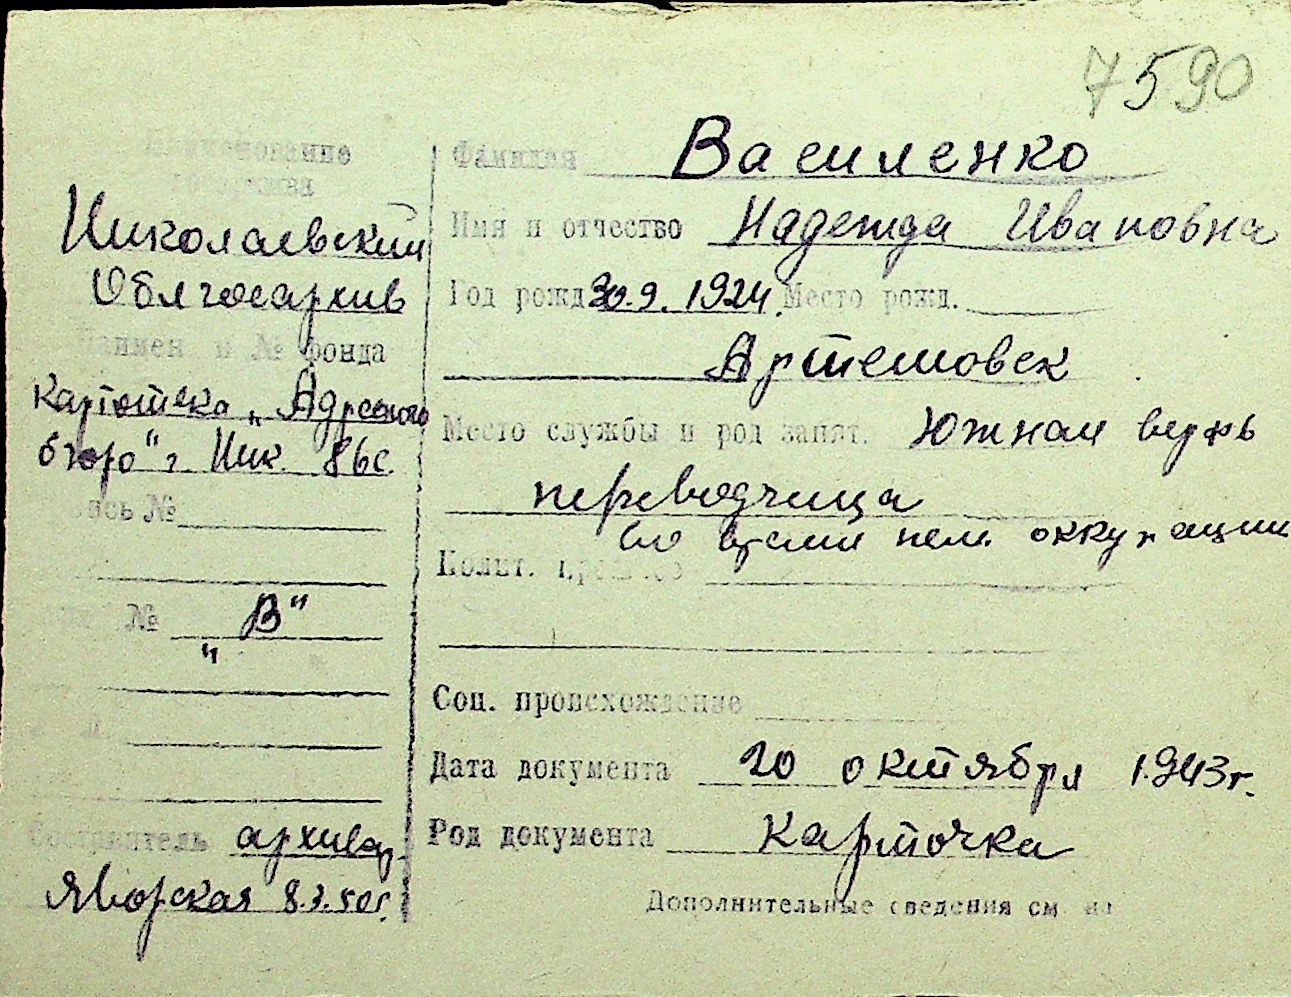 7590
Наименование
госархива
Николаевский
Облгосархив
Наимен. и № фонда
картотека „Адресного
бюро" г. Ник. 86с.
опись №
№ „В"
Составитель архивар.
Яворская 8.3.50г.
Фамилия Василенко
Имя и отчество Надежда Ивановна
Год рожд. 30.9.1924. Место рожд.
Артемовск
Место службы и род занят. Южная верфь
переводчица
во время нем. оккупации
Полит. прошлое
Соц. происхождение
Дата документа 20 октября 1943г.
Род документа карточка
Дополнительные сведения см. на